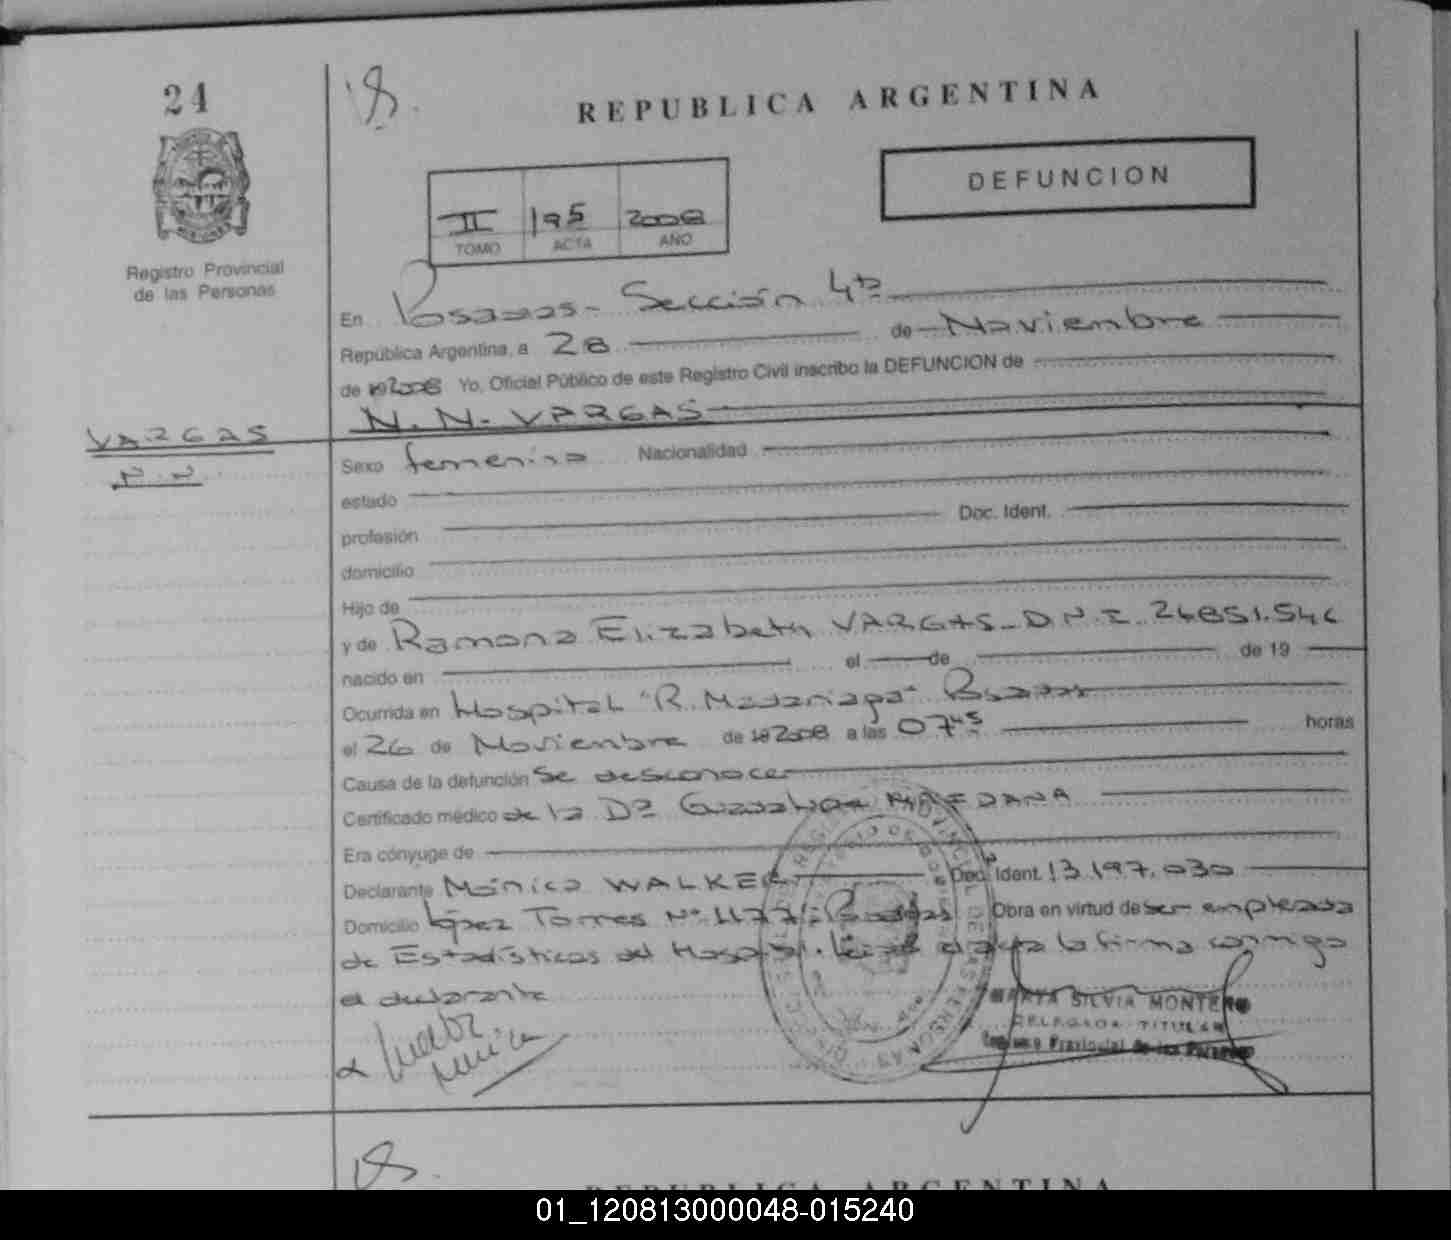 24
REPUBLICA ARGENTINA
DEFUNCION
II 195 2008
TOMO ACTA AÑO
Registro Provincial
de las Personas
En Posadas- Sección 4ta
República Argentina, a 28 de Noviembre
de 192008 Yo, Oficial Público de este Registro Civil inscribo la DEFUNCION de
N. N. VARGAS
VARGAS
N. N
Sexo femenino Nacionalidad
estado
profesión Doc. Ident.
domicilio
Hijo de
y de Ramona Elizabeth VARGAS-D.N.I. 24851.546
nacido en el de de 19
Ocurrida en Hospital "R. Madariaga" Posadas
el 26 de Noviembre de 192008 a las 0745 horas
Causa de la defunción Se desconoce
Certificado médico de la Dra
Era cónyuge de
Declarante Mónica WALKER Doc. Ident. 13.197.030
Domicilio López Torres Nº 1177- Posadas Obra en virtud de ser empleada
de Estadísticas del Hospital. Leída el acta la firma conmigo
el declarante
MARTA SILVIA MONTERO
DELEGADA TITULAR
Registro Provincial de las Personas
REPUBLICA ARGENTINA
01_120813000048-015240